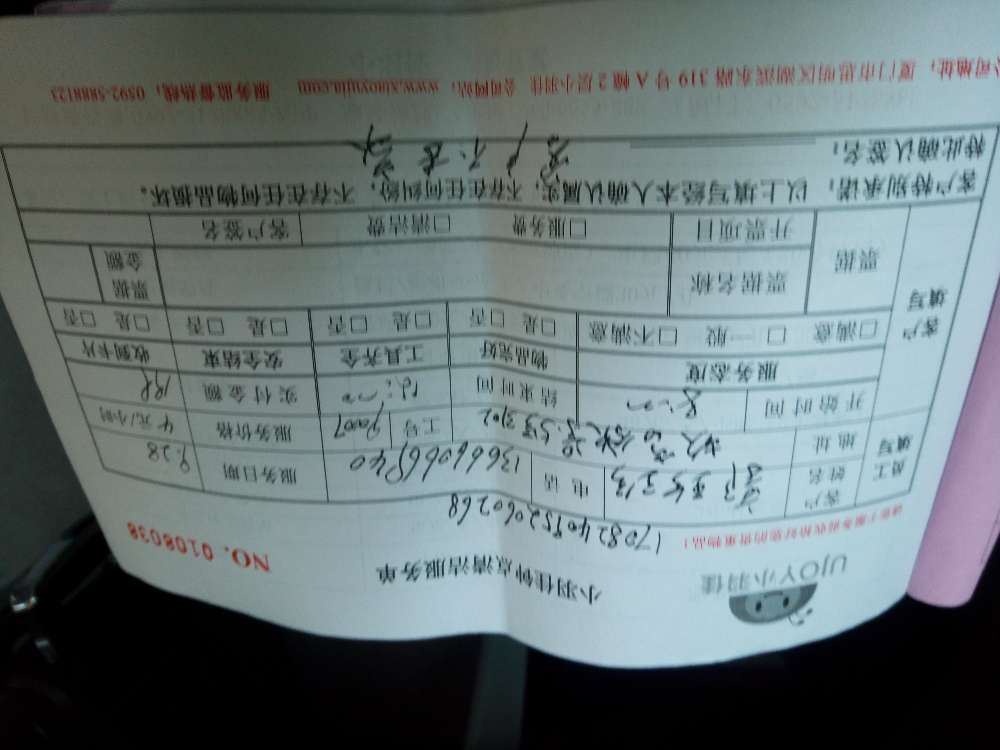 UJOY小羽佳
小羽佳钟点清洁服务单
NO. 0108038
请您于服务前收拾好您的贵重物品！
员工填写
客户姓名
电话
服务日期 9.28
地址
工号
服务价格 元/小时
开始时间 8:00
结束时间 12:00
实付金额
客户填写
服务态度 物品完好 工具齐全 安全结束 收到卡片
□满意 □一般 □不满意 □是 □否 □是 □否 □是 □否 □是 □否
票据
票据名称
票据金额
开票项目 □服务费 □清洁费 客户签名
客户特别承诺： 以上填写经本人确认属实，不存在任何纠纷，不存在任何物品损坏。
特此确认签名： 客户不在家
公司地址：厦门市思明区湖滨东路 319 号 A 幢 2 层小羽佳 公司网站：www.xiaoyujia.com 服务监督热线：0592-5888123